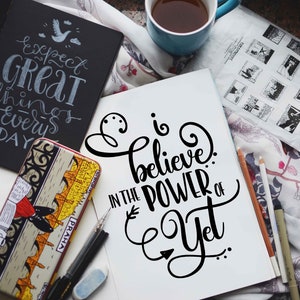 expect
GREAT
things
EVERY
DAY
i
believe
IN THE POWER OF
Yet
PRAHA